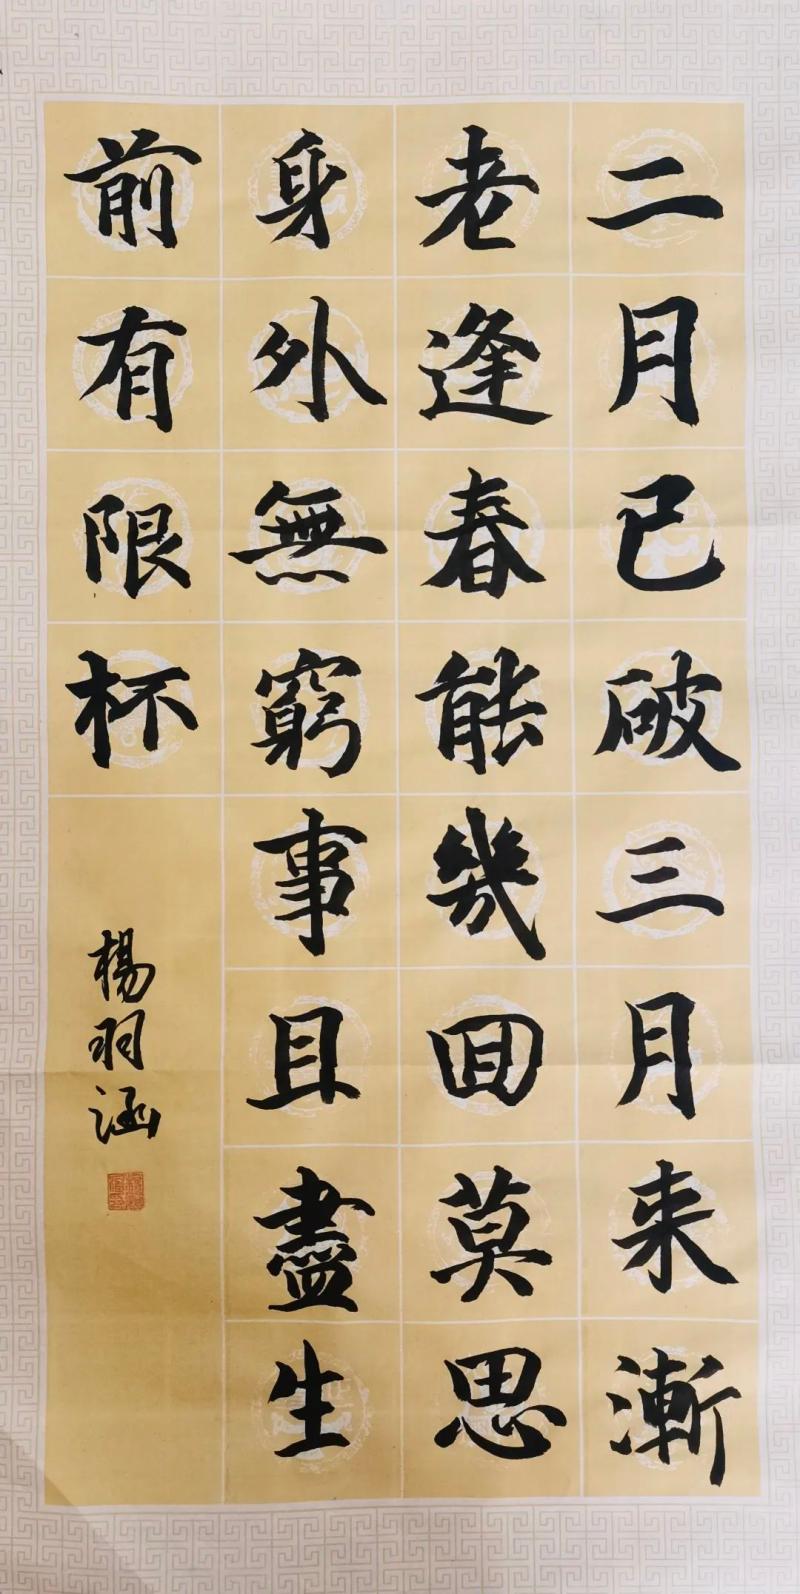 二月已破三月来漸
老逢春能幾回莫思
身外無窮事且盡生
前有限杯
楊羽涵